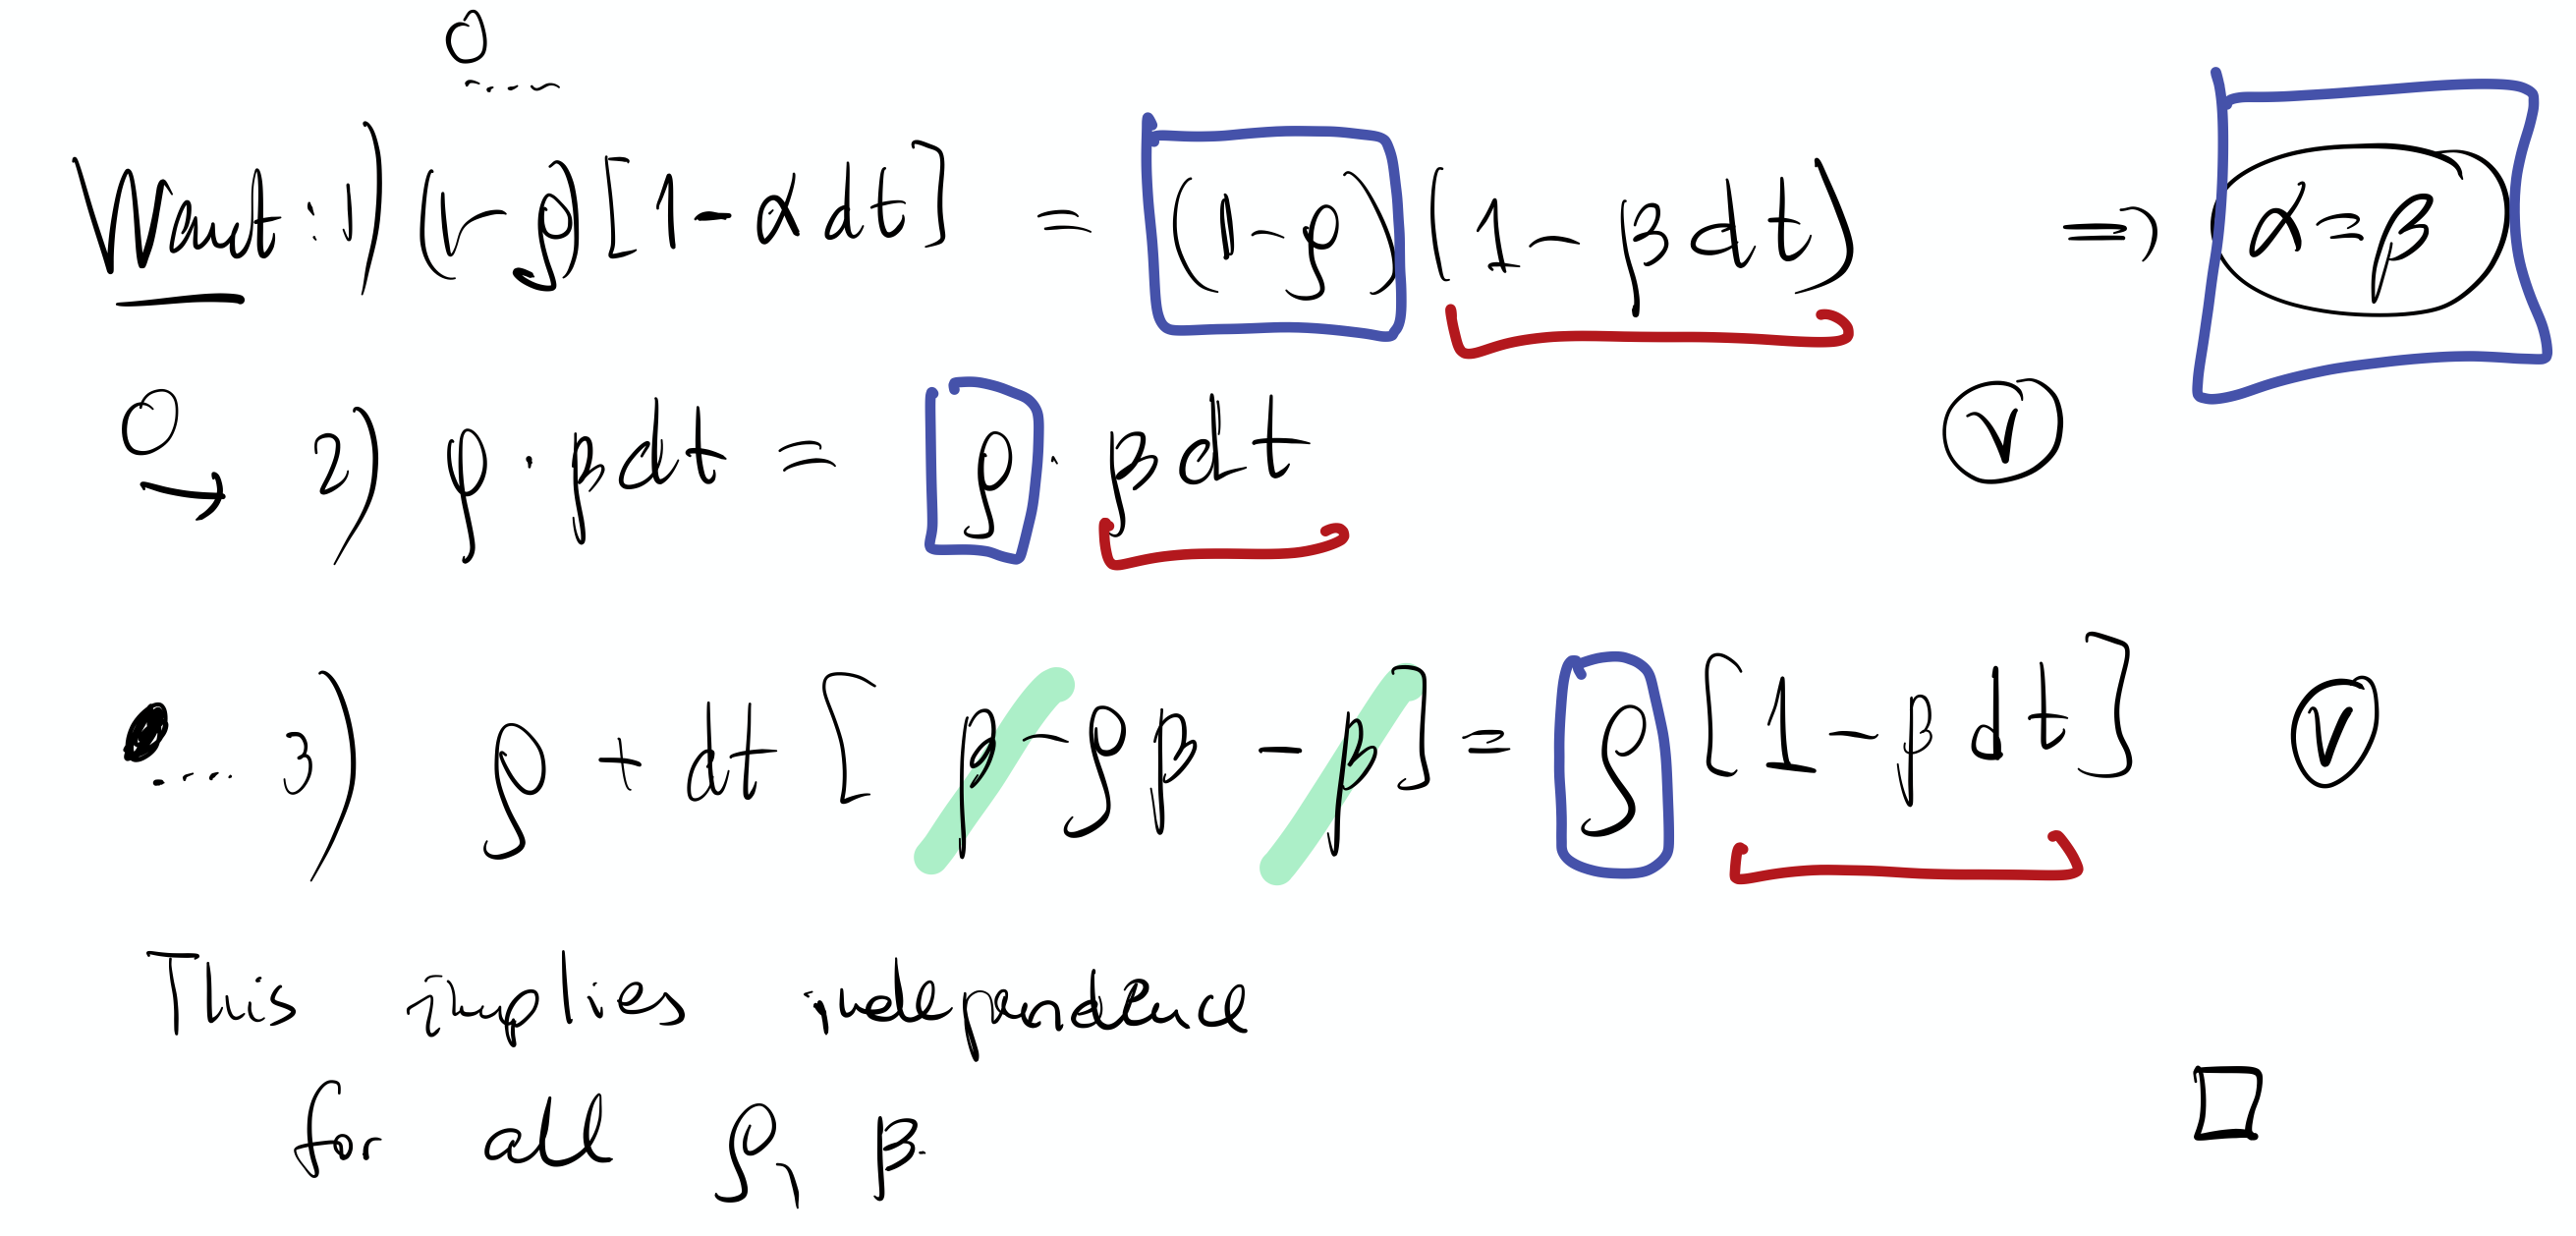 0
Want: 1) (1-ρ)[1-αdt] = (1-ρ)(1-βdt) ⇒ α=β
0 → 2) ρ · βdt = ρ · βdt ✓
.... 3) ρ + dt [β-ρβ-β] = ρ[1-βdt] ✓
This implies independence
for all ρ, β. □